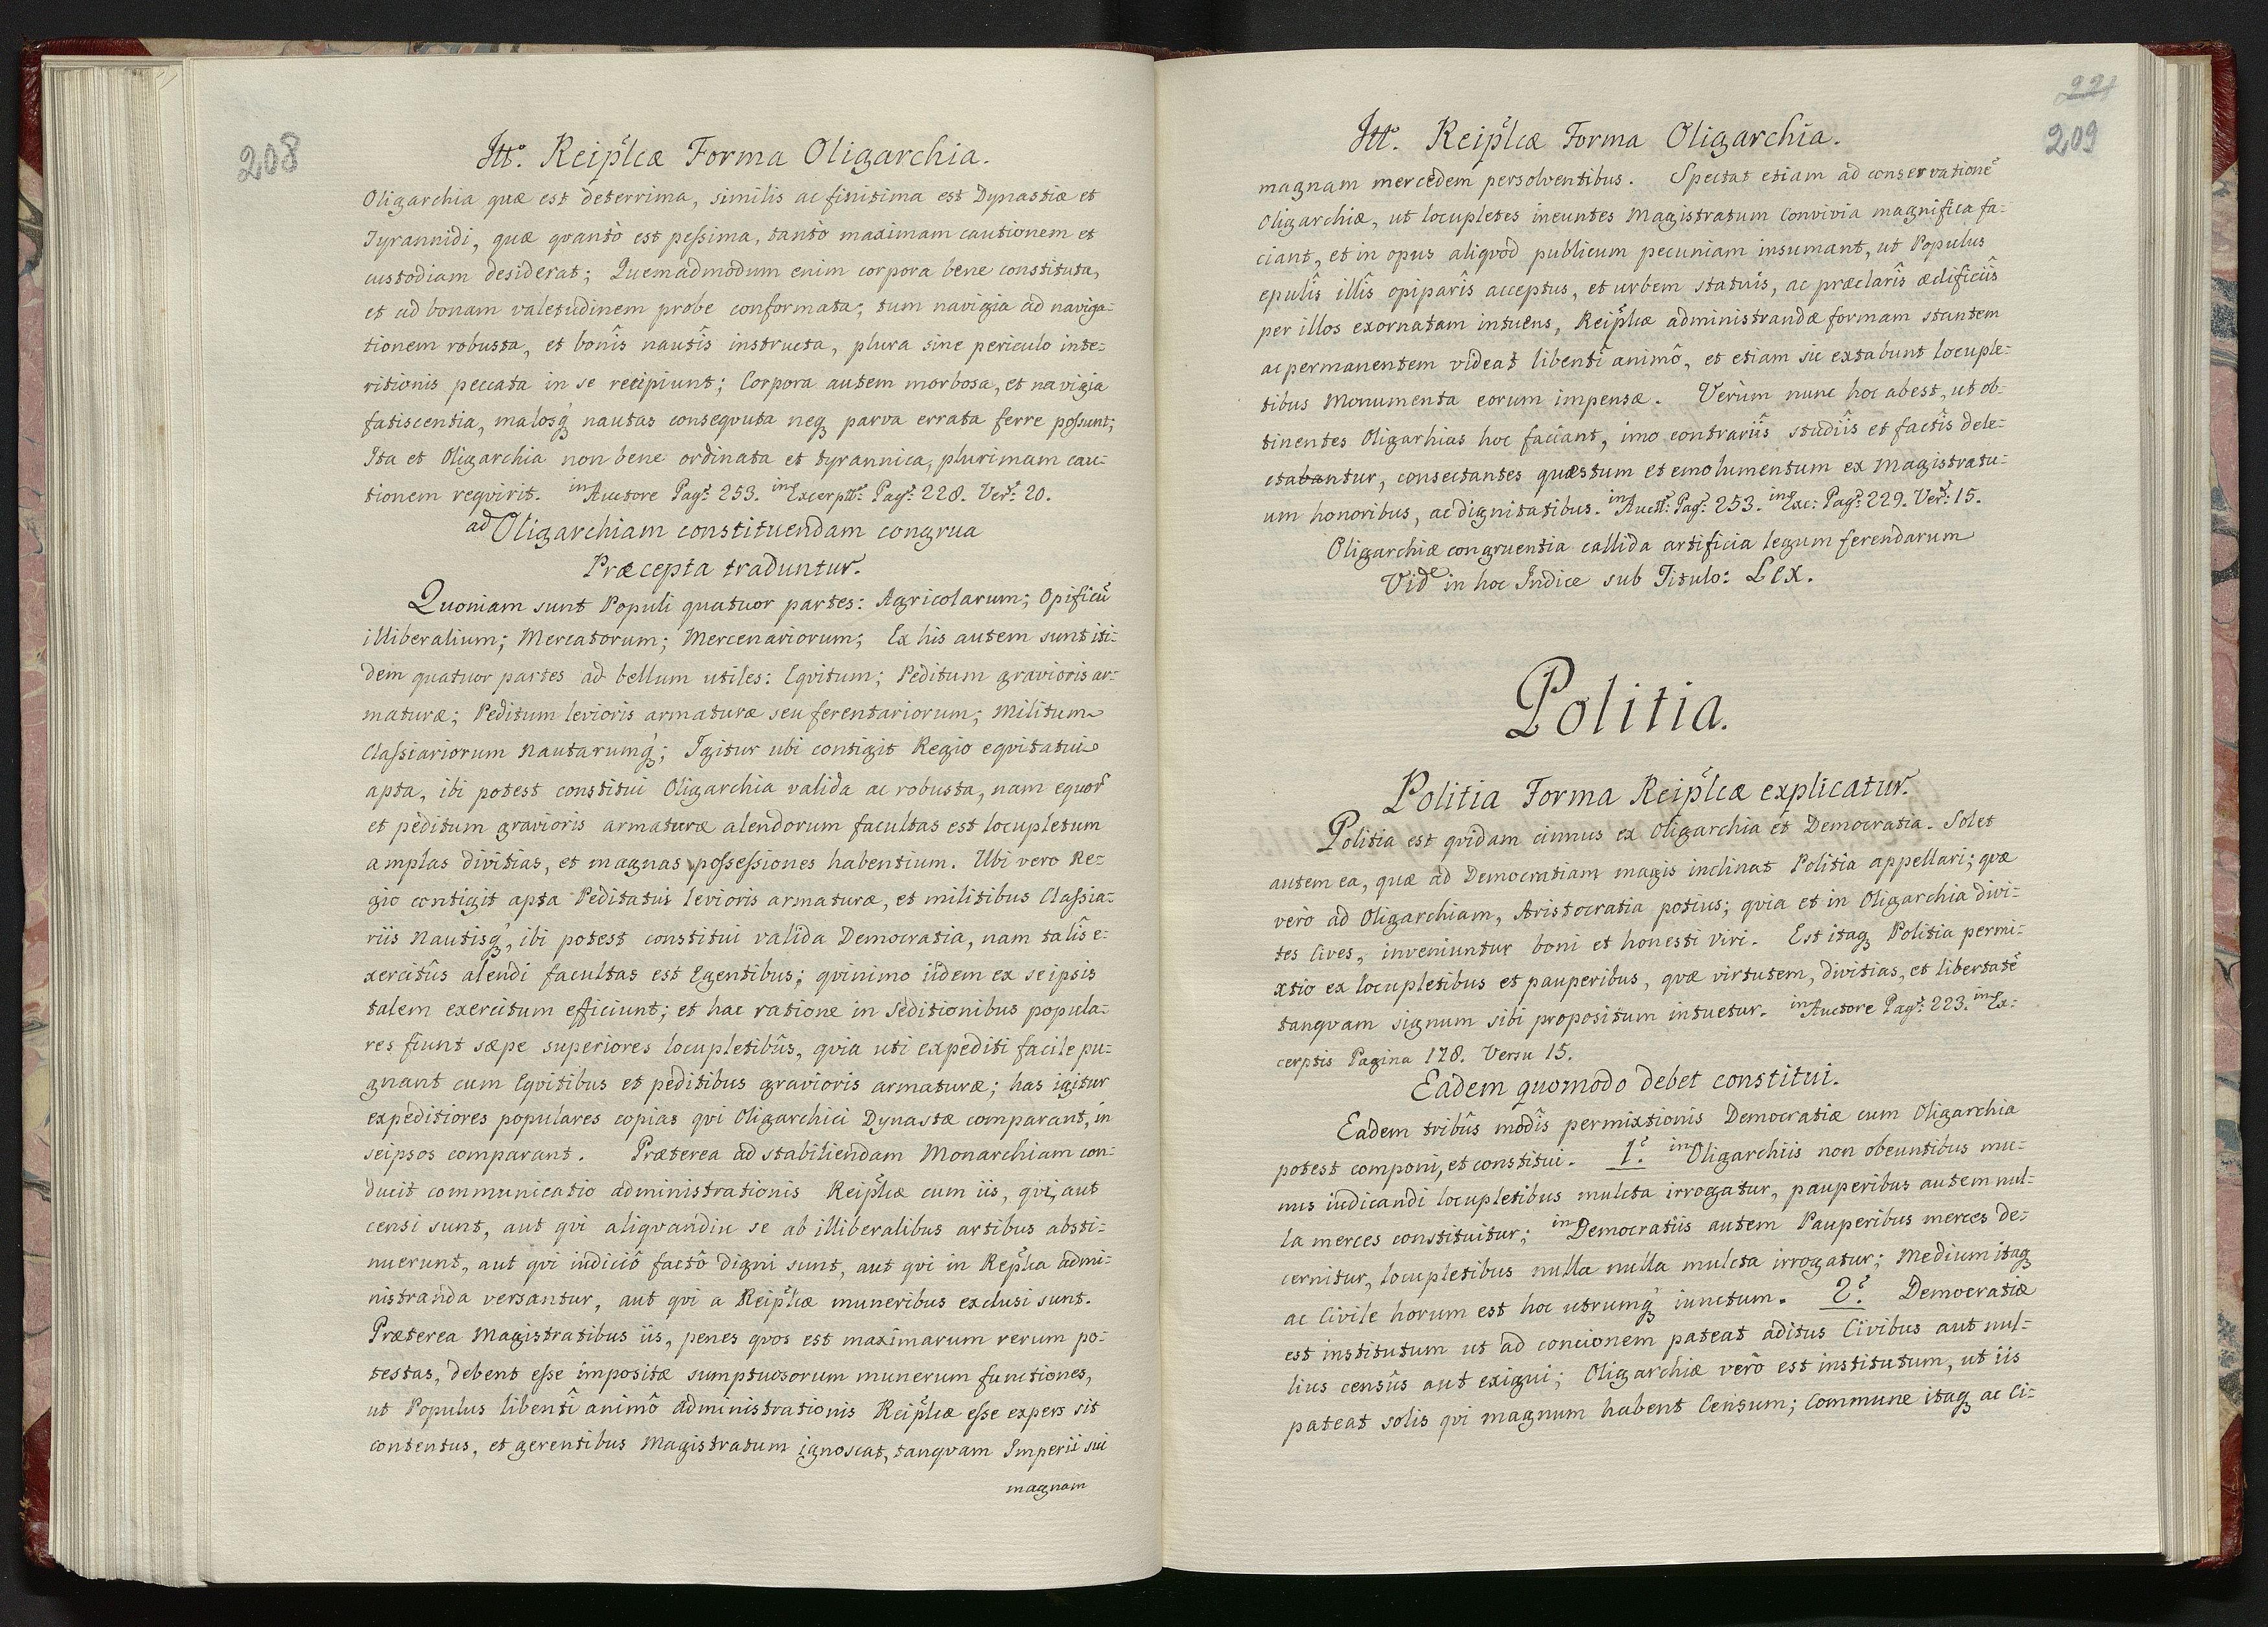 208
Itt:º Reip̃lcæ Forma Oligarchia.
Oligarchia quæ est deterrima, similis ac finitima est Dynastiæ et
Tyrannidi, quæ qvantò est peſsima, tantò maximam cautionem et
custodiam desiderat; Quemadmodum enim corpora bene constituta,
et ad bonam valetudinem probe conformata; tum navigia ad naviga-
tionem robusta, et bonîs nautîs instructa, plura sine periculo inte-
ritionis peccata in se recipiunt; Corpora autem morbosa, et navigia
fatiscentia, malosq́ nautas conseqvuta neq parva errata ferre poſsunt;
Ita et Oligarchia non bene ordinata et tyrannica, plurimam cau-
tionem reqvirit. in Auctore Pagˢ: 253. in Excerptˢ: Pagˢ: 228. Verˢ: 20.
ad Oligarchiam constituendam congrua
Præcepta traduntur.
Quoniam sunt Populi quatuor partes: Agricolarum; Opificũ
illiberalium; Mercatorum; Mercenariorum; Ex his autem sunt iti-
dem quatuor partes ad bellum utiles: Eqvitum; Peditum gravioris ar-
maturæ; Peditum levioris armaturæ seu ferentariorum; Militum
Claſsiariorum Nautarumq́; Igitur ubi contigit Regio eqvitatui
apta, ibi potest constitui Oligarchia valida ac robusta, nam equor̃
et peditum gravioris armaturæ alendorum facultas est locupletum
amplas divitias, et magnas poſseſsiones habentium. Ubi vero Re-
gio contigit apta Peditatui levioris armaturæ, et militibus Claſsia-
riis Nautisq́, ibi potest constitui valida Democratia, nam talîs e-
xercitûs alendi facultas est Egentibus; qvinimo iidem ex seipsis
talem exercitum efficiunt; et hac ratione in Seditionibus popula-
res fiunt sæpe superiores locupletibûs, qvia uti expediti facile pu-
gnant cum Eqvitibus et peditibus gravioris armaturæ; has igitur
expeditiores populares copias qvi Oligarchici Dynastæ comparant, in
seipsos comparant. Præterea ad stabiliendam Monarchiam con-
ducit communicatio administrationis Reip̃lcæ cum iis, qvi, aut
censi sunt, aut qvi aliqvandiu se ab illiberalibus artibus absti-
nuerunt, aut qvi iudiciô factô digni sunt, aut qvi in Rep̃lca admi-
nistranda versantur, aut qvi a Reip̃lcæ muneribus exclusi sunt.
Præterea Magistratibus iis, penes qvos est maximarum rerum po-
testas, debent eſse impositæ sumptuosorum munerum functiones,
ut Populus libentî animô administrationis Reip̃lcæ eſse expers sit
contentus, et gerentibus Magistratum ignoscat, tanqvam Imperii sui
magnam
221
209
Itt:º Reip̃lcæ Forma Oligarchia.
magnam mercedem persolventibus. Spectat etiam ad conservationẽ
Oligarchiæ, ut locupletes ineuntes Magistratum Convivia magnifica fa-
ciant, et in opus aliqvod publicum pecuniam insumant, ut Populus
epulîs illîs opiparîs acceptus, et urbem statuîs, ac præclarîs ædificiîs
per illos exornatam intuens, Reip̃lcæ administrandæ formam stantem
ac permanentem videat libentî animô, et etiam sic extabunt locuple-
tibus Monumenta eorum impensæ. Verùm nunc hoc abest, ut ob-
tinentes Oligarhias hoc faciant, imo contrariîs studiîs et factîs dele-
ctabantur, consectantes quæstum et emolumentum ex Magistratu-
um honoribus, ac dignitatibus. in Auctˢ: Pagˢ: 253. in Exc: Pagˢ: 229. Verˢ: 15.
Oligarchiæ congruentia callida artificia legum ferendarum
Vide in hoc Indice sub Titulo: Lex.
Politia.
Politia Forma Reip̃lcæ explicatur.
Politia est qvidam cinnus ex Oligarchia et Democratia. Solet
autem ea, quæ ad Democratiam magis inclinat Politia appellari; qvæ
verò ad Oligarchiam, Aristocratia potius; qvia et in Oligarchia divi-
tes Cives, inveniuntur boni et honesti viri. Est itaq Politia permi-
xtio ex locupletibus et pauperibus, qvæ virtutem, divitias, et libertatẽ
tanqvam signum sibi propositum intuetur. in Auctore Pagˢ: 223. in Ex-
cerptis Pagina 178. Versu 15.
Eadem quomodo debet constitui.
Eadem tribûs modîs permixtionis Democratiæ cum Oligarchia
potest componi, et constitui. 1.º in Oligarchiis non obeuntibus mu-
nus iudicandi locupletibus mulcta irrogatur, pauperibus autem nul-
la merces constituitur; in Democratiis autem Pauperibus merces de-
cernitur, locupletibus nulla nulla mulcta irrogatur; Medium itaq
ac Civile horum est hoc utrumq́ iunctum. 2.º Democratiæ
est institutum ut ad concionem pateat aditus Civibus aut nul-
lius censûs aut exigui; Oligarchiæ verò est institutum, ut iis
pateat solis qvi magnum habent Censum; Commune itaq ac Ci-